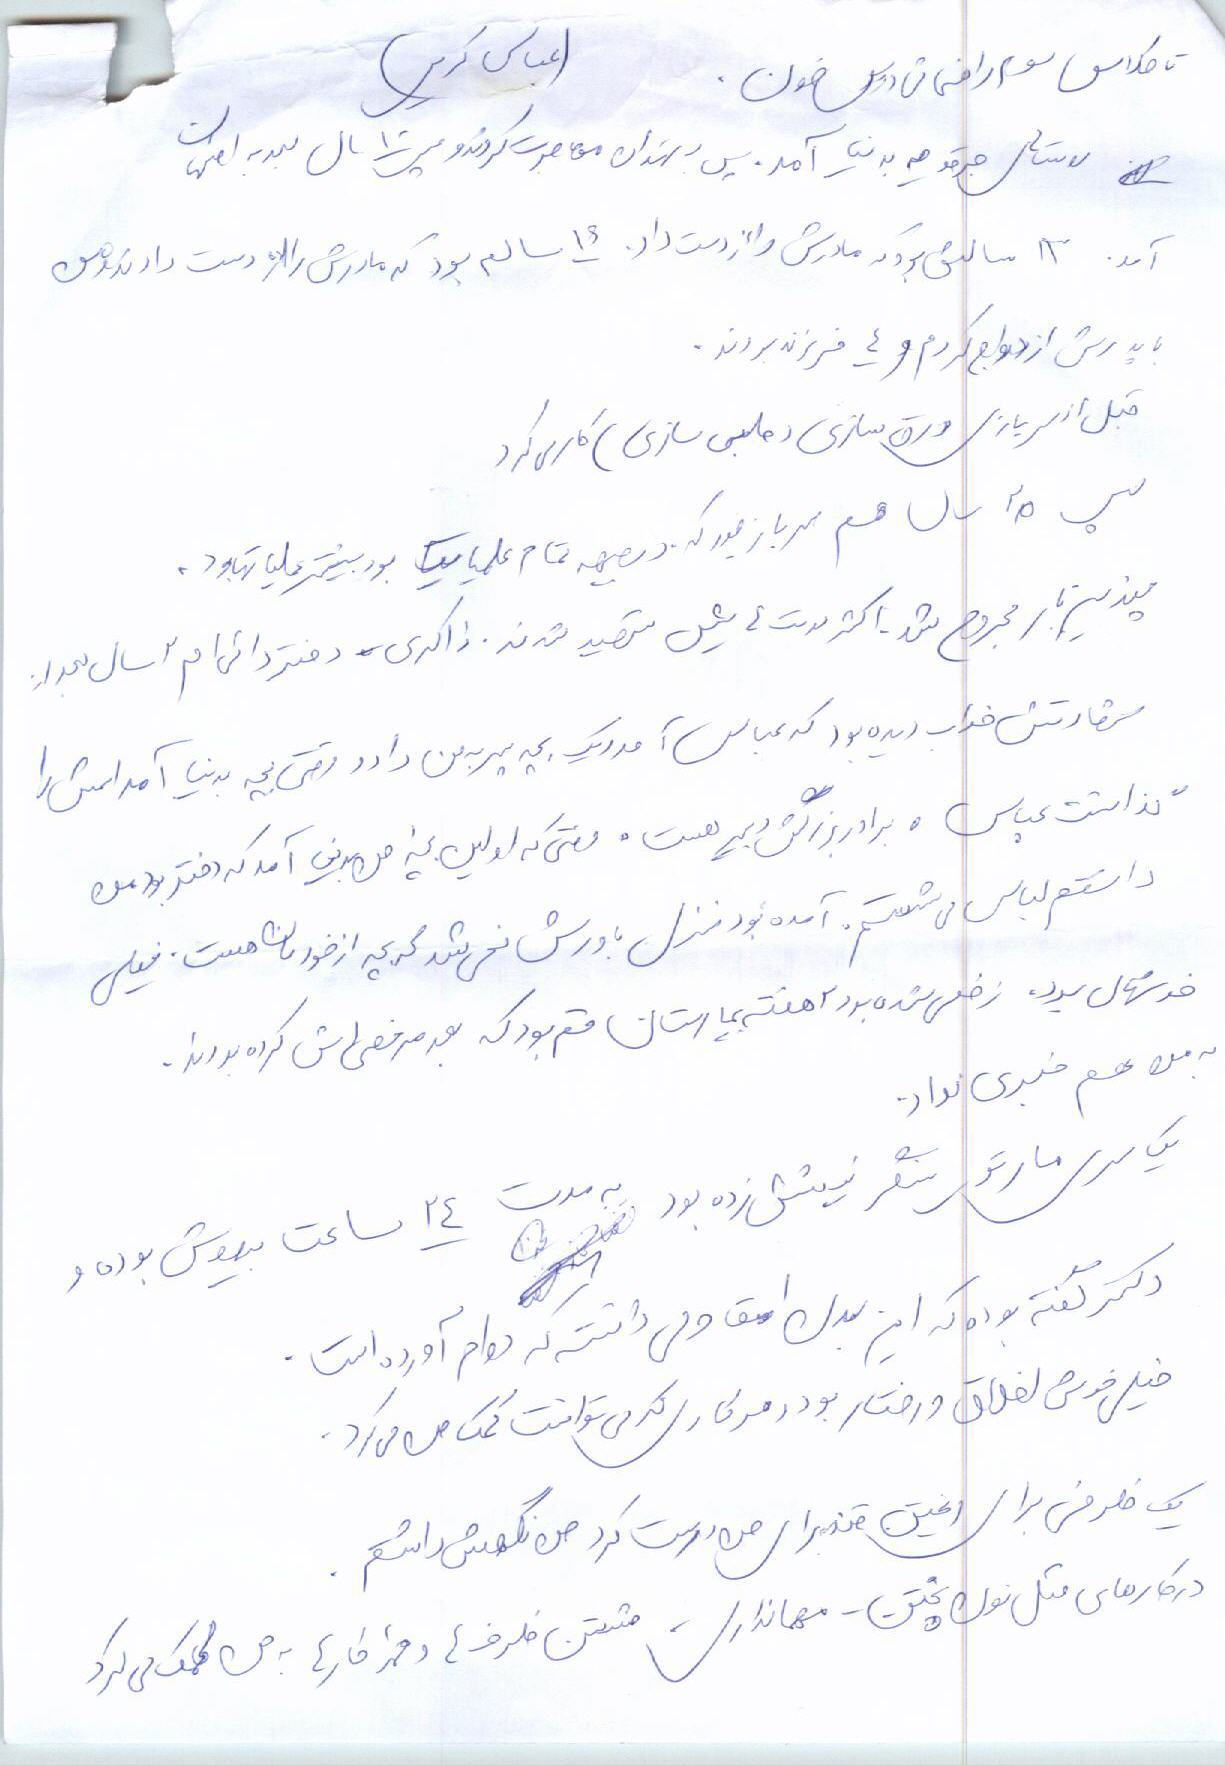 تا کلاس سوم راهنمائی درس خون. (عباس کریمی)
روستای جرقویه بدنیا آمد. پس به تهران مهاجرت کردند و پس ۱۰ سال بعد به اصفهان
آمد. ۱۳ سالش بود که مادرش را از دست داد. ۱۶ سالم بود که مادرش را از دست دادند و من
با پدرش ازدواج کردم و ٤ فرزند بودند.
قبل از سربازی ورق سازی (حلبی سازی) کار می کرد
سال هم سرباز بود که در جبهه تمام عملیات بود بیشتر عملیاتها بود.
چندین بار مجروح شد. اکثر دوست هایش شهید شدند. ذاکری - دختر دائی ام ۲ سال بعد از
شهادتش خواب دیده بود که عباس آمد و یک بچه پسر به من داد و وقتی بچه بدنیا آمد اسمش را
گذاشت عباس. برادر بزرگش هست. وقتی که اولین بچه من بدنیا آمد که دختر بود من
داشتم لباس می شستم. آمده بود منزل باورش نمی شد که بچه از خودمان هست. خیلی
خوشحال بود. زخمی شده بود ۲ هفته بیمارستان قم بود که بعد مرخص اش کرده بودند.
به من هم خبری نداد.
یک سری مار توی سنگر نیشش زده بود به مدت ۲٤ ساعت بیهوش بوده و
دکتر گفته بوده که این بدن قوی داشته که دوام آورده است.
خیلی خوش اخلاق و رفتار بود و هر کاری که می توانست کمک من می کرد.
یک ظرفی برای ریختن قند برای من درست کرد من نگهش داشتم.
در کارهای مثل نون پختن - مهمانداری - شستن ظرف ها و کارها به من کمک می کرد